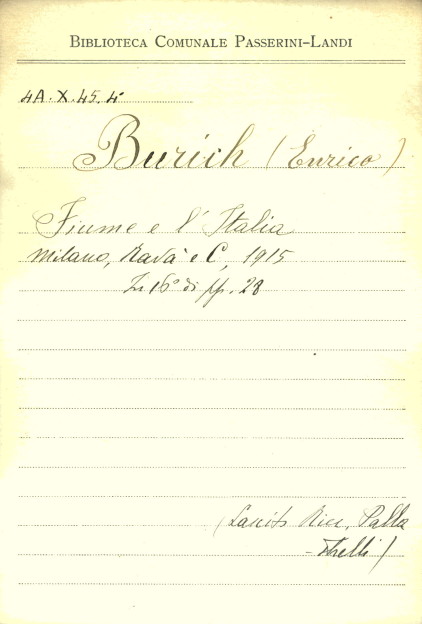 Biblioteca Comunale Passerini-Landi
4A.X.45.4
Burich (Enrico)
Fiume e l'Italia
Milano, Ravà e C, 1915
In 16° di pp. 28
(Lascito Ricc. Palla
-strelli)